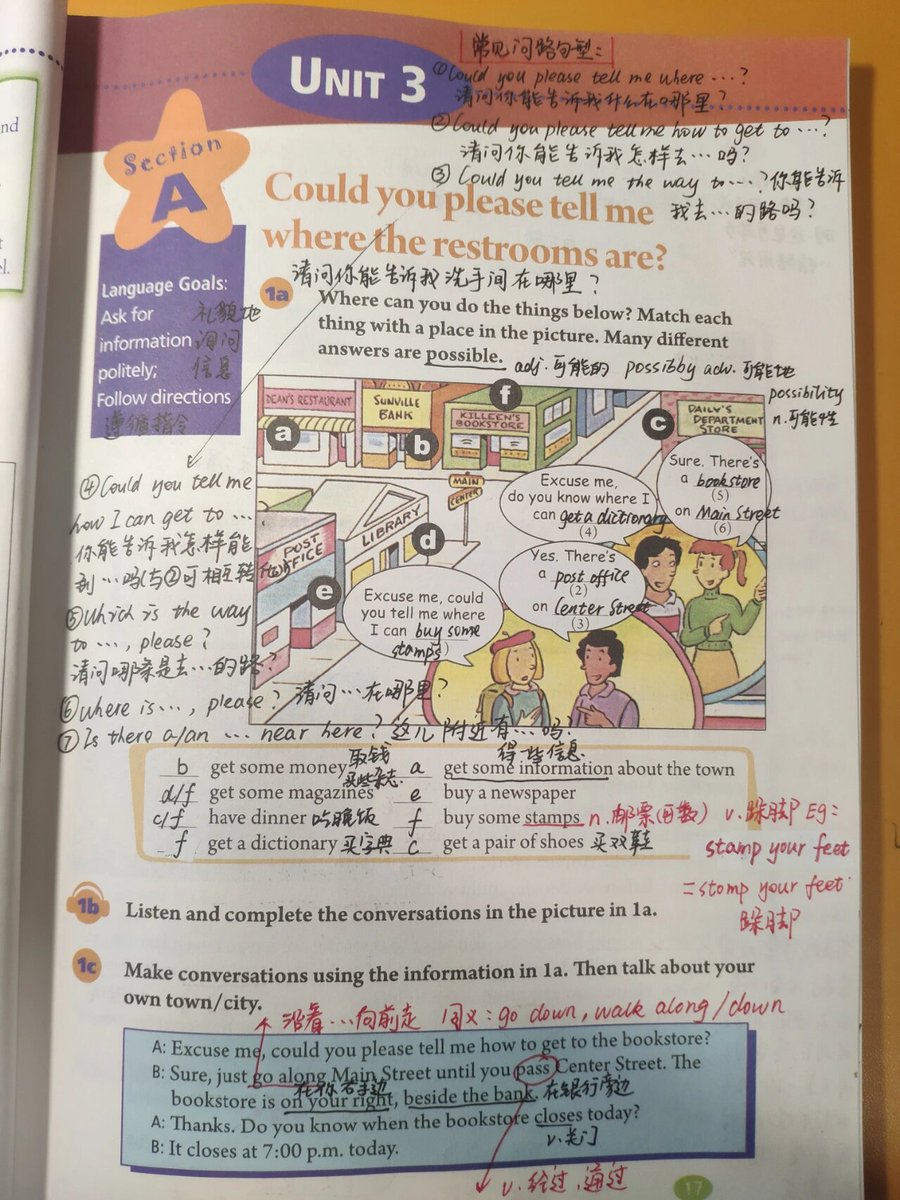 常见问路句型：
UNIT 3
①Could you please tell me where …?
请问你能告诉我什么在哪里？
②Could you please tell me how to get to …?
请问你能告诉我怎样去…吗？
③Could you tell me the way to …? 你能告诉
我去…的路吗？
Section
A
Could you please tell me
where the restrooms are?
请问你能告诉我洗手间在哪里？
Language Goals:
Ask for
information
politely;
Follow directions
礼貌地
询问
信息
遵循指令
1a
Where can you do the things below? Match each
thing with a place in the picture. Many different
answers are possible.
adj.可能的 possibby adv.可能地
possibility
n.可能性
DEAN'S RESTAURANT
SUNVILLE
BANK
KILLEEN'S
BOOKSTORE
DAILY'S
DEPARTMENT
STORE
a
b
f
c
MAIN
CENTER
LIBRARY
d
POST
OFFICE
e
Excuse me,
do you know where I
can get a dictionary
(4)
Sure. There's
a bookstore
(5)
on Main Street
(6)
Excuse me, could
you tell me where
I can buy some
stamps
Yes. There's
a post office
(2)
on Center Street
(3)
④Could you tell me
how I can get to …
你能告诉我怎样能
到…吗(与②可相互转
⑤Which is the way
to …, please?
请问哪条是去…的路？
⑥Where is …, please? 请问…在哪里？
⑦Is there a/an … near here? 这儿附近有…吗？
b get some money 取钱
a get some information about the town
得一些信息
d/f get some magazines 买些杂志.
e buy a newspaper
c/f have dinner 吃晚饭
f buy some stamps n.邮票(可数) v.跺脚 Eg:
f get a dictionary 买字典
c get a pair of shoes 买双鞋
stamp your feet
=stomp your feet
跺脚
1b
Listen and complete the conversations in the picture in 1a.
1c
Make conversations using the information in 1a. Then talk about your
own town/city.
沿着…向前走 同义: go down, walk along/down
A: Excuse me, could you please tell me how to get to the bookstore?
B: Sure, just go along Main Street until you pass Center Street. The
在你右手边
bookstore is on your right, beside the bank. 在银行旁边
A: Thanks. Do you know when the bookstore closes today?
v.关门
B: It closes at 7:00 p.m. today.
v.经过，通过
17